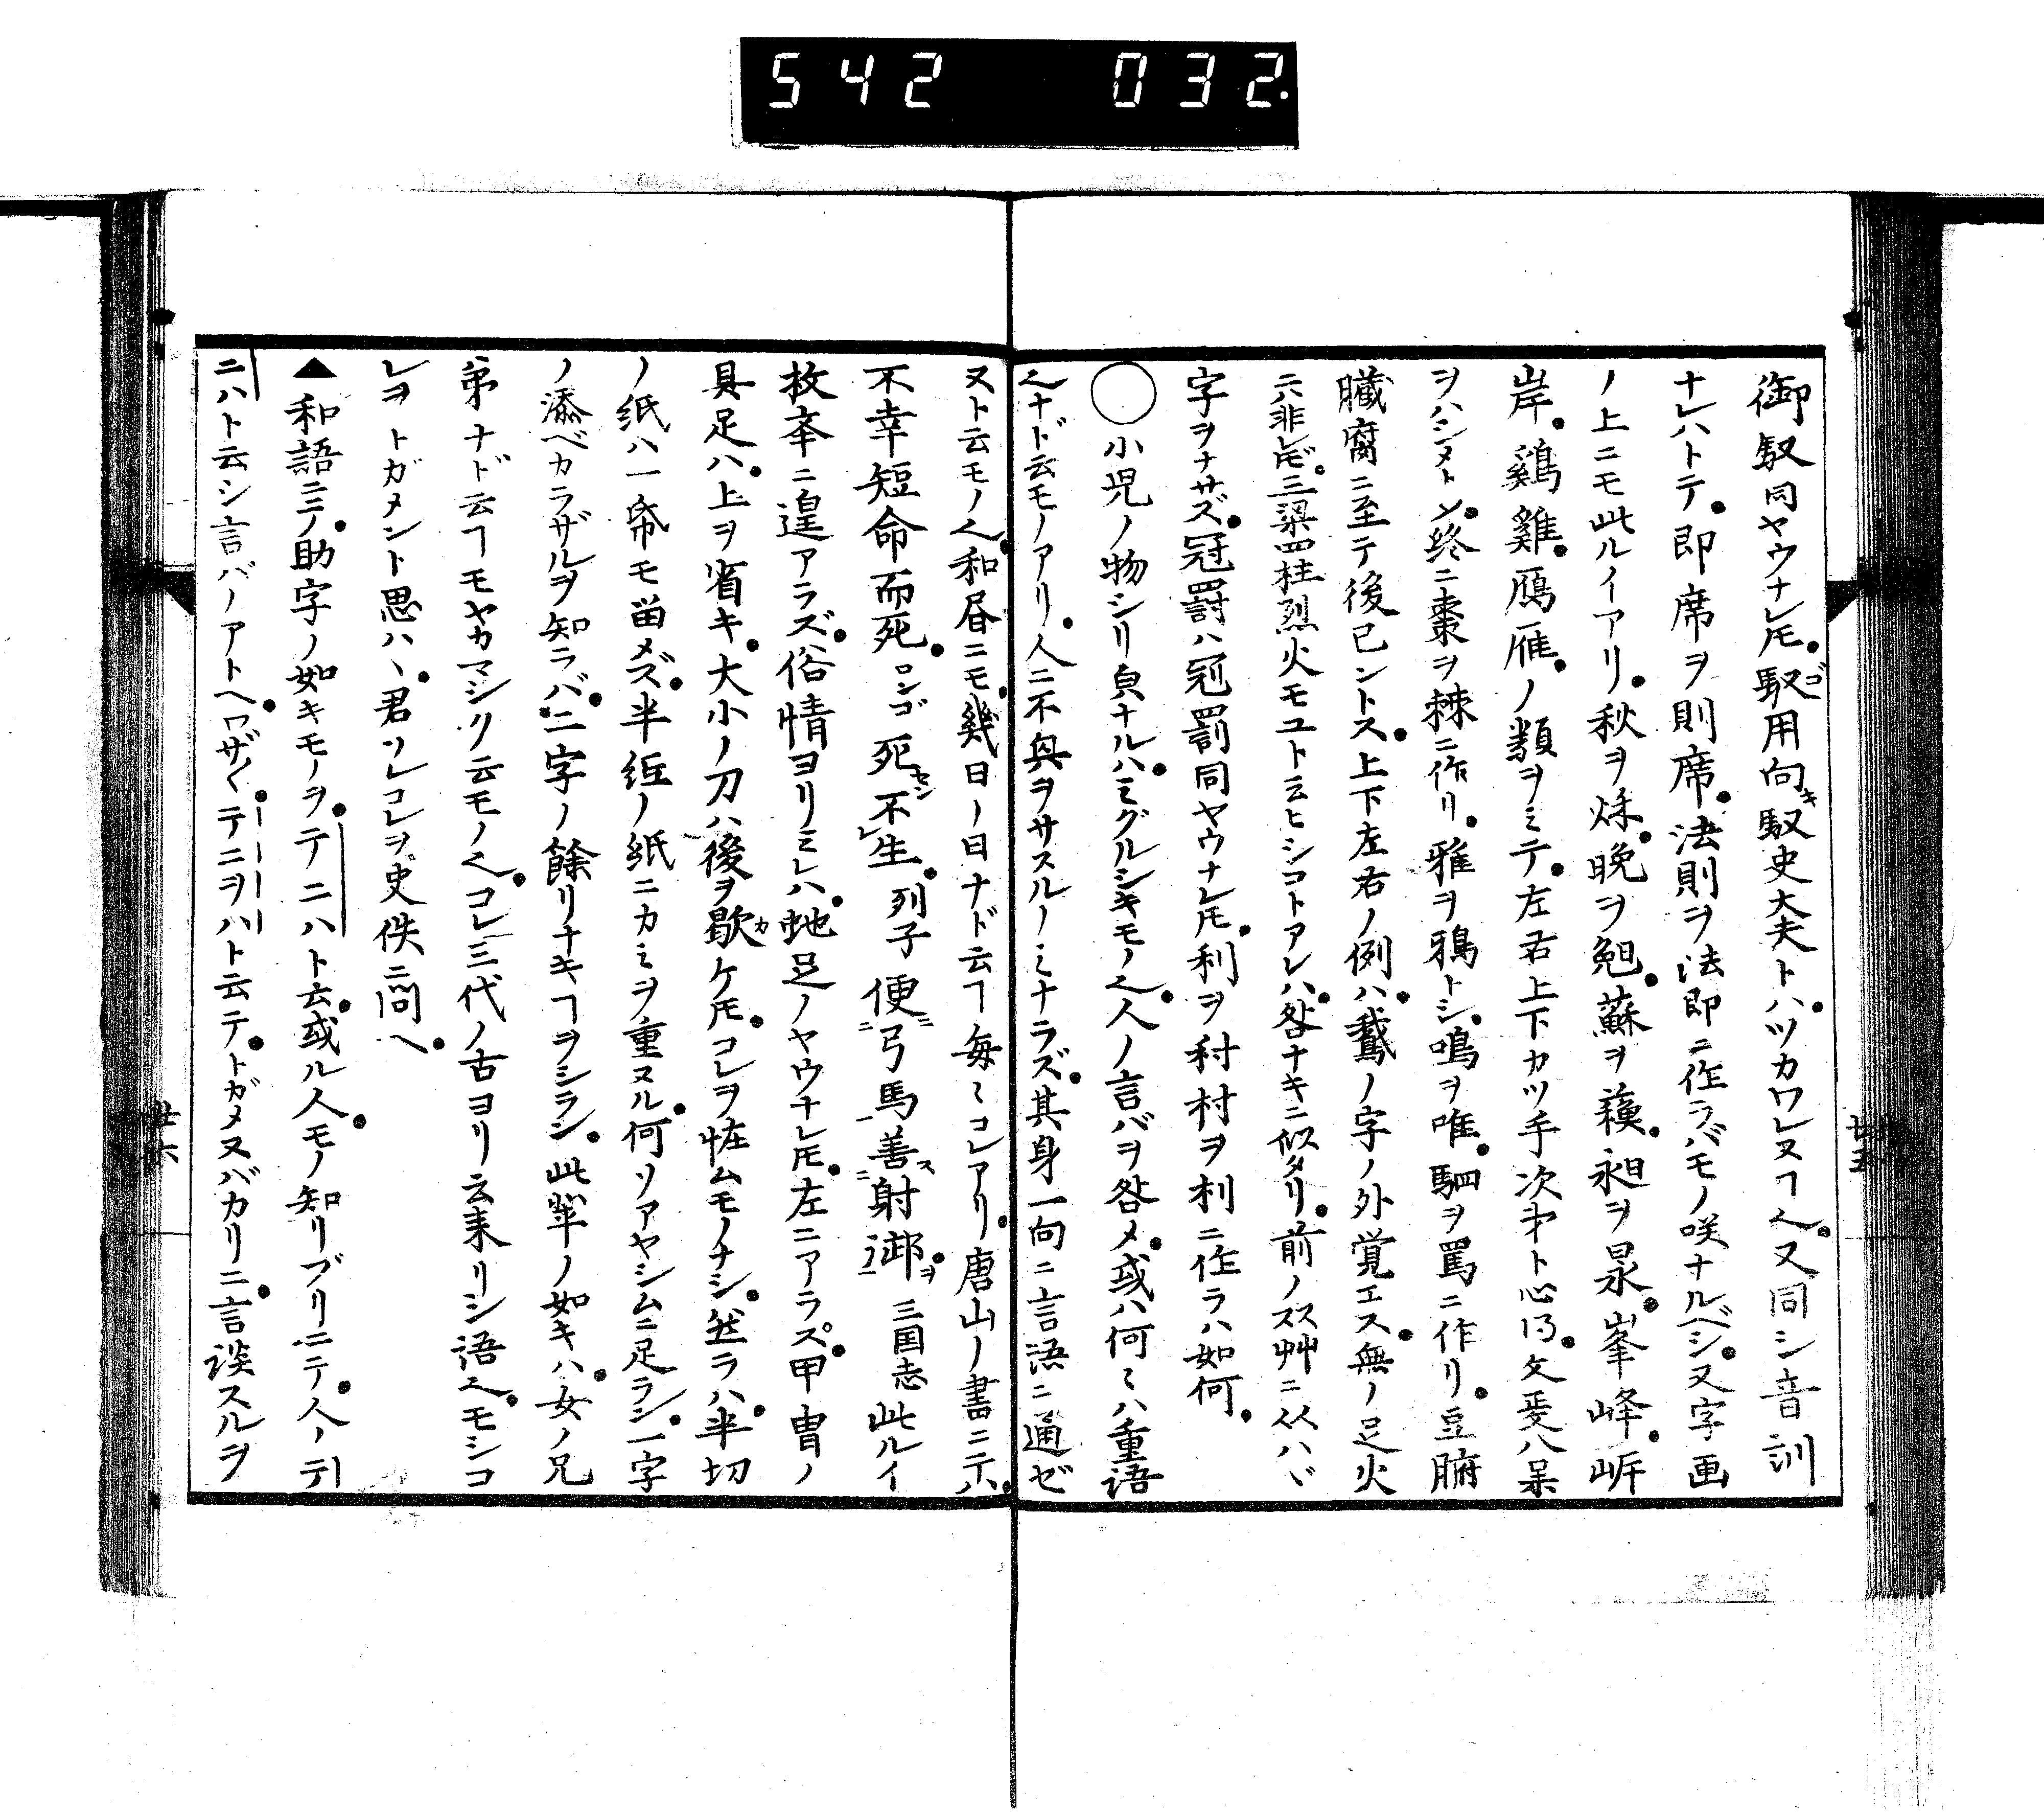 542 032.
御馭同ヤウナレ𪜈馭用向馭史大夫トハツカワレヌヿ也又同シ音訓
ナレハトテ即席ヲ則席法則ヲ法即ニ作ラバモノ咲ナルベシ又字画
ノ上ニモ此ルイアリ秋ヲ烁晩ヲ勉蘇ヲ蘓昶ヲ峯峰岍
岸鷄雞鴈雁ノ類ヲミテ左右上下カツ手次㐧ト心得文ハ杲
ヲハジメトシ終ニ棗ヲ棘ニ作リ雅ヲ鴉トシ鳴ヲ唯駟ヲ罵ニ作リ豆腑
臓腐ニ至テ後已ントス上下左右ノ例ハ鵞ノ字ノ外覚エス無ノ足火
ニハ非レ𪜈三梁四柱烈火モユト云ヒシコトアレハ咎ナキニ似タリ前ノヌス艸ニ从ハヾ
字ヲナサズ冠罸ハ冠罰同ヤウナレ𪜈利ヲ村ヲ利ニ作ラハ如何
○小児ノ物シリ皃ナルハミグルシキモノ也人ノ言バヲ咎メ或ハ何〻ハ重語
也ナド云モノアリ人ニ不興ヲサスルノミナラズ其身一向ニ言語ニ通ゼ
ヌト云モノ也和昼ニモ幾日ノ日ナド云ヿ毎〻コレアリ唐山ノ書ニ不
不幸短命而死ロンゴ死セシ不レ生列子便ニ弓馬一善ス射御ヲ三国志此ルイ
枚挙ニ遑アラズ俗情ヨリミレハ蛇足ノヤウナレ𪜈左ニアラズ甲冑ノ
具足ハ上ヲ省キ大小ノ刀ハ後ヲ歇カケ𪜈コレヲ恠ムモノナシ然ラハ半切
ノ紙ハ一帋モ畄メズ半紙ノ紙ニカミヲ重ヌル何ソアヤシムニ足ラン一字
ノ添ベカラザルヲ知ラバ二字ノ餘リナキヿヲシラン此輩ノ如キハ女ノ兄
弟ナド云ヿモヤカマシク云モノ也コレ三代ノ古ヨリ云来リシ語也モシコ
レヲトガメント思ハヽ君ソレコレヲ史佚ニ問ヘ
▲和語ニノ助字ノ如キモノヲテニハト云或ル人モノ知リブリニテ人ノテ
ニハト云シ言バノアトヘワザ〱テニヲハト云テトガメヌバカリニ言談スルヲ
廿五
廿六